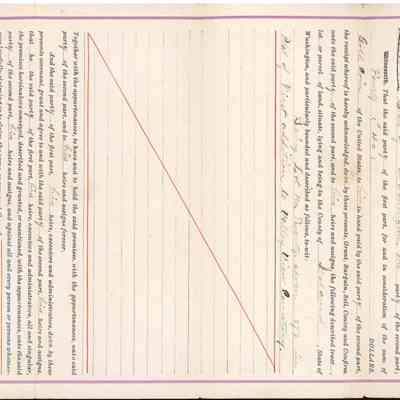 party of the second part;
Witnesseth, That the said party of the first part, for and in consideration of the sum of
DOLLARS,
Gold Coin of the United States, to him in hand paid by the said party of the second part,
the receipt whereof is hereby acknowledged, does by these presents, Grant, Bargain, Sell, Convey and Confirm
unto the said party of the second part, and to his heirs and assigns, the following described tract
lot or parcel of land, situate, lying and being in the County of Island, State of
Washington, and particularly bounded and described as follows, to-wit:
Being Lot No
of First Addition to Valley View Cemetery
Together with the appurtenances, to have and to hold the said premises, with the appurtenances, unto said
party of the second part, and to his heirs and assigns forever.
And the said party of the first part, his heirs, executors and administrators, does by these
presents covenant, grant and agree to and with the said party of the second part, his heirs and assigns,
that he the said party of the first part, his heirs, executors and administrators, all and singular,
the premises hereinabove conveyed, described and granted, or mentioned, with the appurtenances, unto the said
party of the second part, his heirs and assigns, and against all and every person or persons whomso-